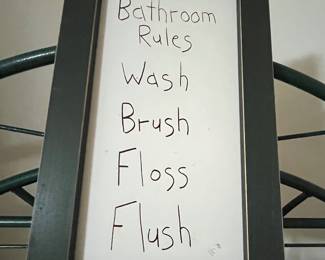 Bathroom
Rules
Wash
Brush
Floss
Flush